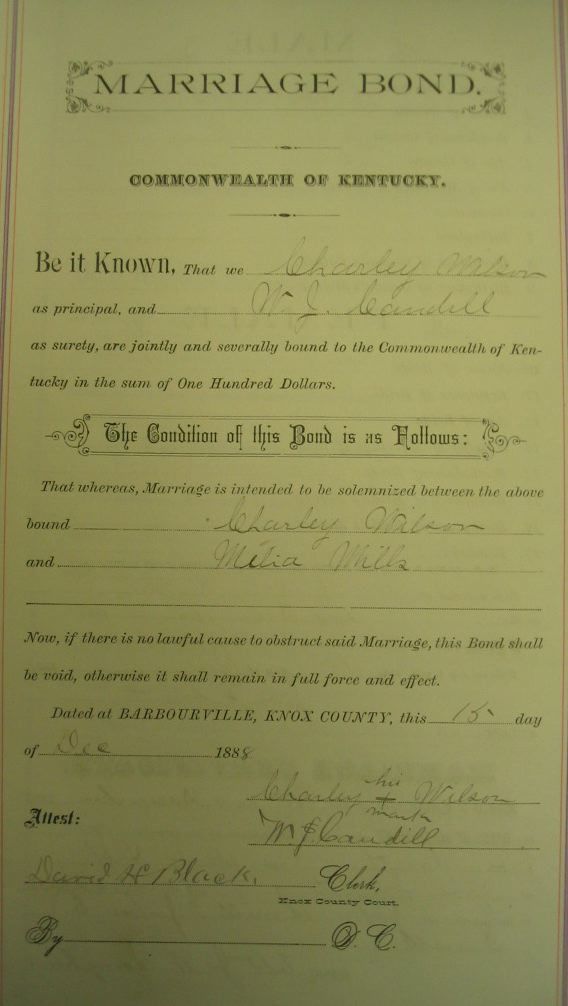 MARRIAGE BOND.
COMMONWEALTH OF KENTUCKY.
Be it Known, That we Charley Wilson
as principal, and W. J. Caudill
as surety, are jointly and severally bound to the Commonwealth of Ken-
tucky in the sum of One Hundred Dollars.
The Condition of this Bond is as Follows:
That whereas, Marriage is intended to be solemnized between the above
bound Charley Wilson
and Milia Mills
Now, if there is no lawful cause to obstruct said Marriage, this Bond shall
be void, otherwise it shall remain in full force and effect.
Dated at BARBOURVILLE, KNOX COUNTY, this 15 day
of Dec 1888
his
Charley + Wilson
mark
Attest:
W. J. Caudill
David H Black, Clerk,
Knox County Court.
By D. C.